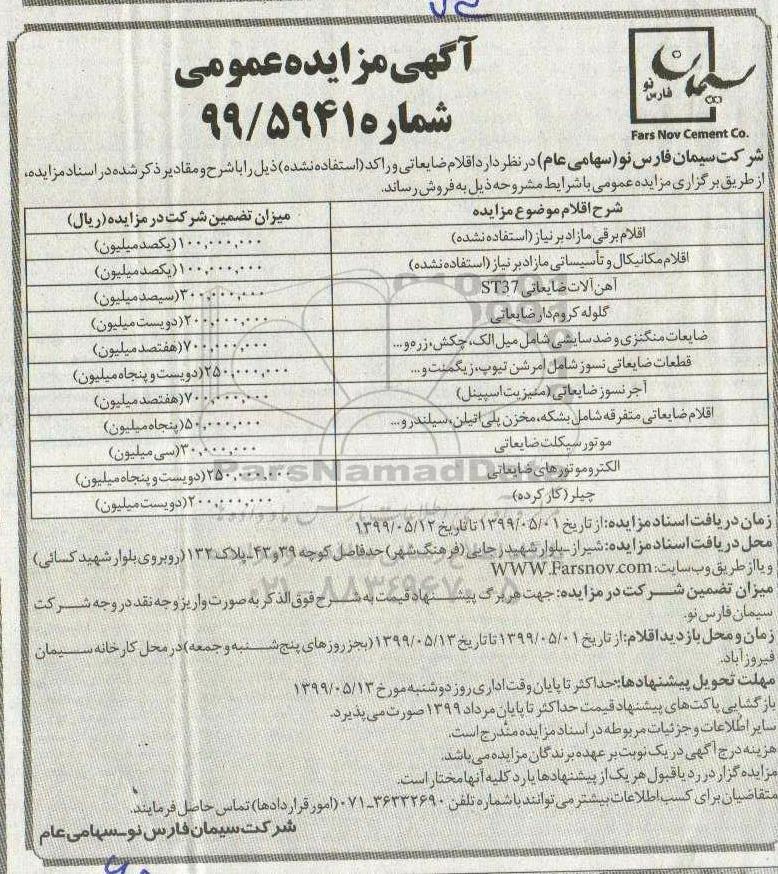 سیمان
فارس نو
Fars Nov Cement Co.
آگهی مزایده عمومی
شماره ۹۹/۵۹۴۱
شرکت سیمان فارس نو (سهامی عام) در نظر دارد اقلام ضایعاتی و راکد (استفاده نشده) ذیل را با شرح و مقادیر ذکر شده در اسناد مزایده،
از طریق برگزاری مزایده عمومی با شرایط مشروحه ذیل به فروش رساند.
شرح اقلام موضوع مزایده | میزان تضمین شرکت در مزایده (ریال)
اقلام برقی مازاد بر نیاز (استفاده نشده) | ۱۰۰,۰۰۰,۰۰۰ (یکصد میلیون)
اقلام مکانیکال و تأسیساتی مازاد بر نیاز (استفاده نشده) | ۱۰۰,۰۰۰,۰۰۰ (یکصد میلیون)
آهن آلات ضایعاتی ST37 | ۳۰۰,۰۰۰,۰۰۰ (سیصد میلیون)
گلوله کروم دار ضایعاتی | ۲۰۰,۰۰۰,۰۰۰ (دویست میلیون)
ضایعات منگنزی و ضد سایشی شامل میل الک، چکش، زره و... | ۷۰۰,۰۰۰,۰۰۰ (هفتصد میلیون)
قطعات ضایعاتی نسوز شامل امرشن تیوپ، زیگمنت و... | ۲۵۰,۰۰۰,۰۰۰ (دویست و پنجاه میلیون)
آجر نسوز ضایعاتی (منیزیت اسپینل) | ۷۰۰,۰۰۰,۰۰۰ (هفتصد میلیون)
اقلام ضایعاتی متفرقه شامل بشکه، مخزن پلی اتیلن، سیلندر و... | ۵۰,۰۰۰,۰۰۰ (پنجاه میلیون)
موتور سیکلت ضایعاتی | ۳۰,۰۰۰,۰۰۰ (سی میلیون)
الکتروموتورهای ضایعاتی | ۲۵۰,۰۰۰,۰۰۰ (دویست و پنجاه میلیون)
چیلر (کار کرده) | ۲۰۰,۰۰۰,۰۰۰ (دویست میلیون)
ParsNamadData
زمان دریافت اسناد مزایده: از تاریخ ۱۳۹۹/۰۵/۰۱ تا تاریخ ۱۳۹۹/۰۵/۱۲
محل دریافت اسناد مزایده: شیراز_بلوار شهید رجایی (فرهنگ شهر) حد فاصل کوچه ۳۹ و ۴۲_پلاک ۱۳۲ (روبروی بلوار شهید کسائی)
و یا از طریق وب سایت: WWW.Farsnov.com
میزان تضمین شرکت در مزایده: جهت هر برگ پیشنهاد قیمت به شرح فوق الذکر به صورت واریز وجه نقد در وجه شرکت
سیمان فارس نو.
زمان و محل بازدید اقلام: از تاریخ ۱۳۹۹/۰۵/۰۱ تا تاریخ ۱۳۹۹/۰۵/۱۳ (بجز روزهای پنج شنبه و جمعه) در محل کارخانه سیمان
فیروزآباد.
مهلت تحویل پیشنهادها: حداکثر تا پایان وقت اداری روز دوشنبه مورخ ۱۳۹۹/۰۵/۱۳
بازگشایی پاکت های پیشنهاد قیمت حداکثر تا پایان مرداد ۱۳۹۹ صورت می پذیرد.
سایر اطلاعات و جزئیات مربوطه در اسناد مزایده مندرج است.
هزینه درج آگهی در یک نوبت بر عهده برندگان مزایده می باشد.
مزایده گزار در رد یا قبول هر یک از پیشنهادها یا رد کلیه آنها مختار است.
متقاضیان برای کسب اطلاعات بیشتر می توانند با شماره تلفن ۳۶۳۲۲۶۹۰_۰۷۱ (امور قراردادها) تماس حاصل فرمایند.
شرکت سیمان فارس نو_سهامی عام